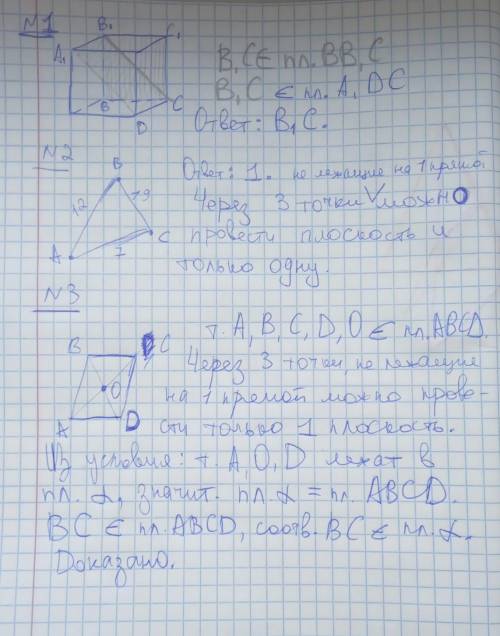 N1
B₁ C₁
A₁
B C
D
B₁C ∈ пл. BB₁C
B₁C ∈ пл. A₁DC
Ответ: B₁C.
N2
B
12 19
A 7 C
Ответ: 1. не лежащие на 1 прямой
Через 3 точки V можно
провести плоскость и
только одну.
N3
B C
O
A D
т. A, B, C, D, O ∈ пл. ABCD.
Через 3 точки, не лежащие
на 1 прямой можно прове-
сти только 1 плоскость.
Из условия: т. A, O, D лежат в
пл. α, значит. пл. α = пл. ABCD.
BC ∈ пл. ABCD, соотв. BC ∈ пл. α.
Доказано.